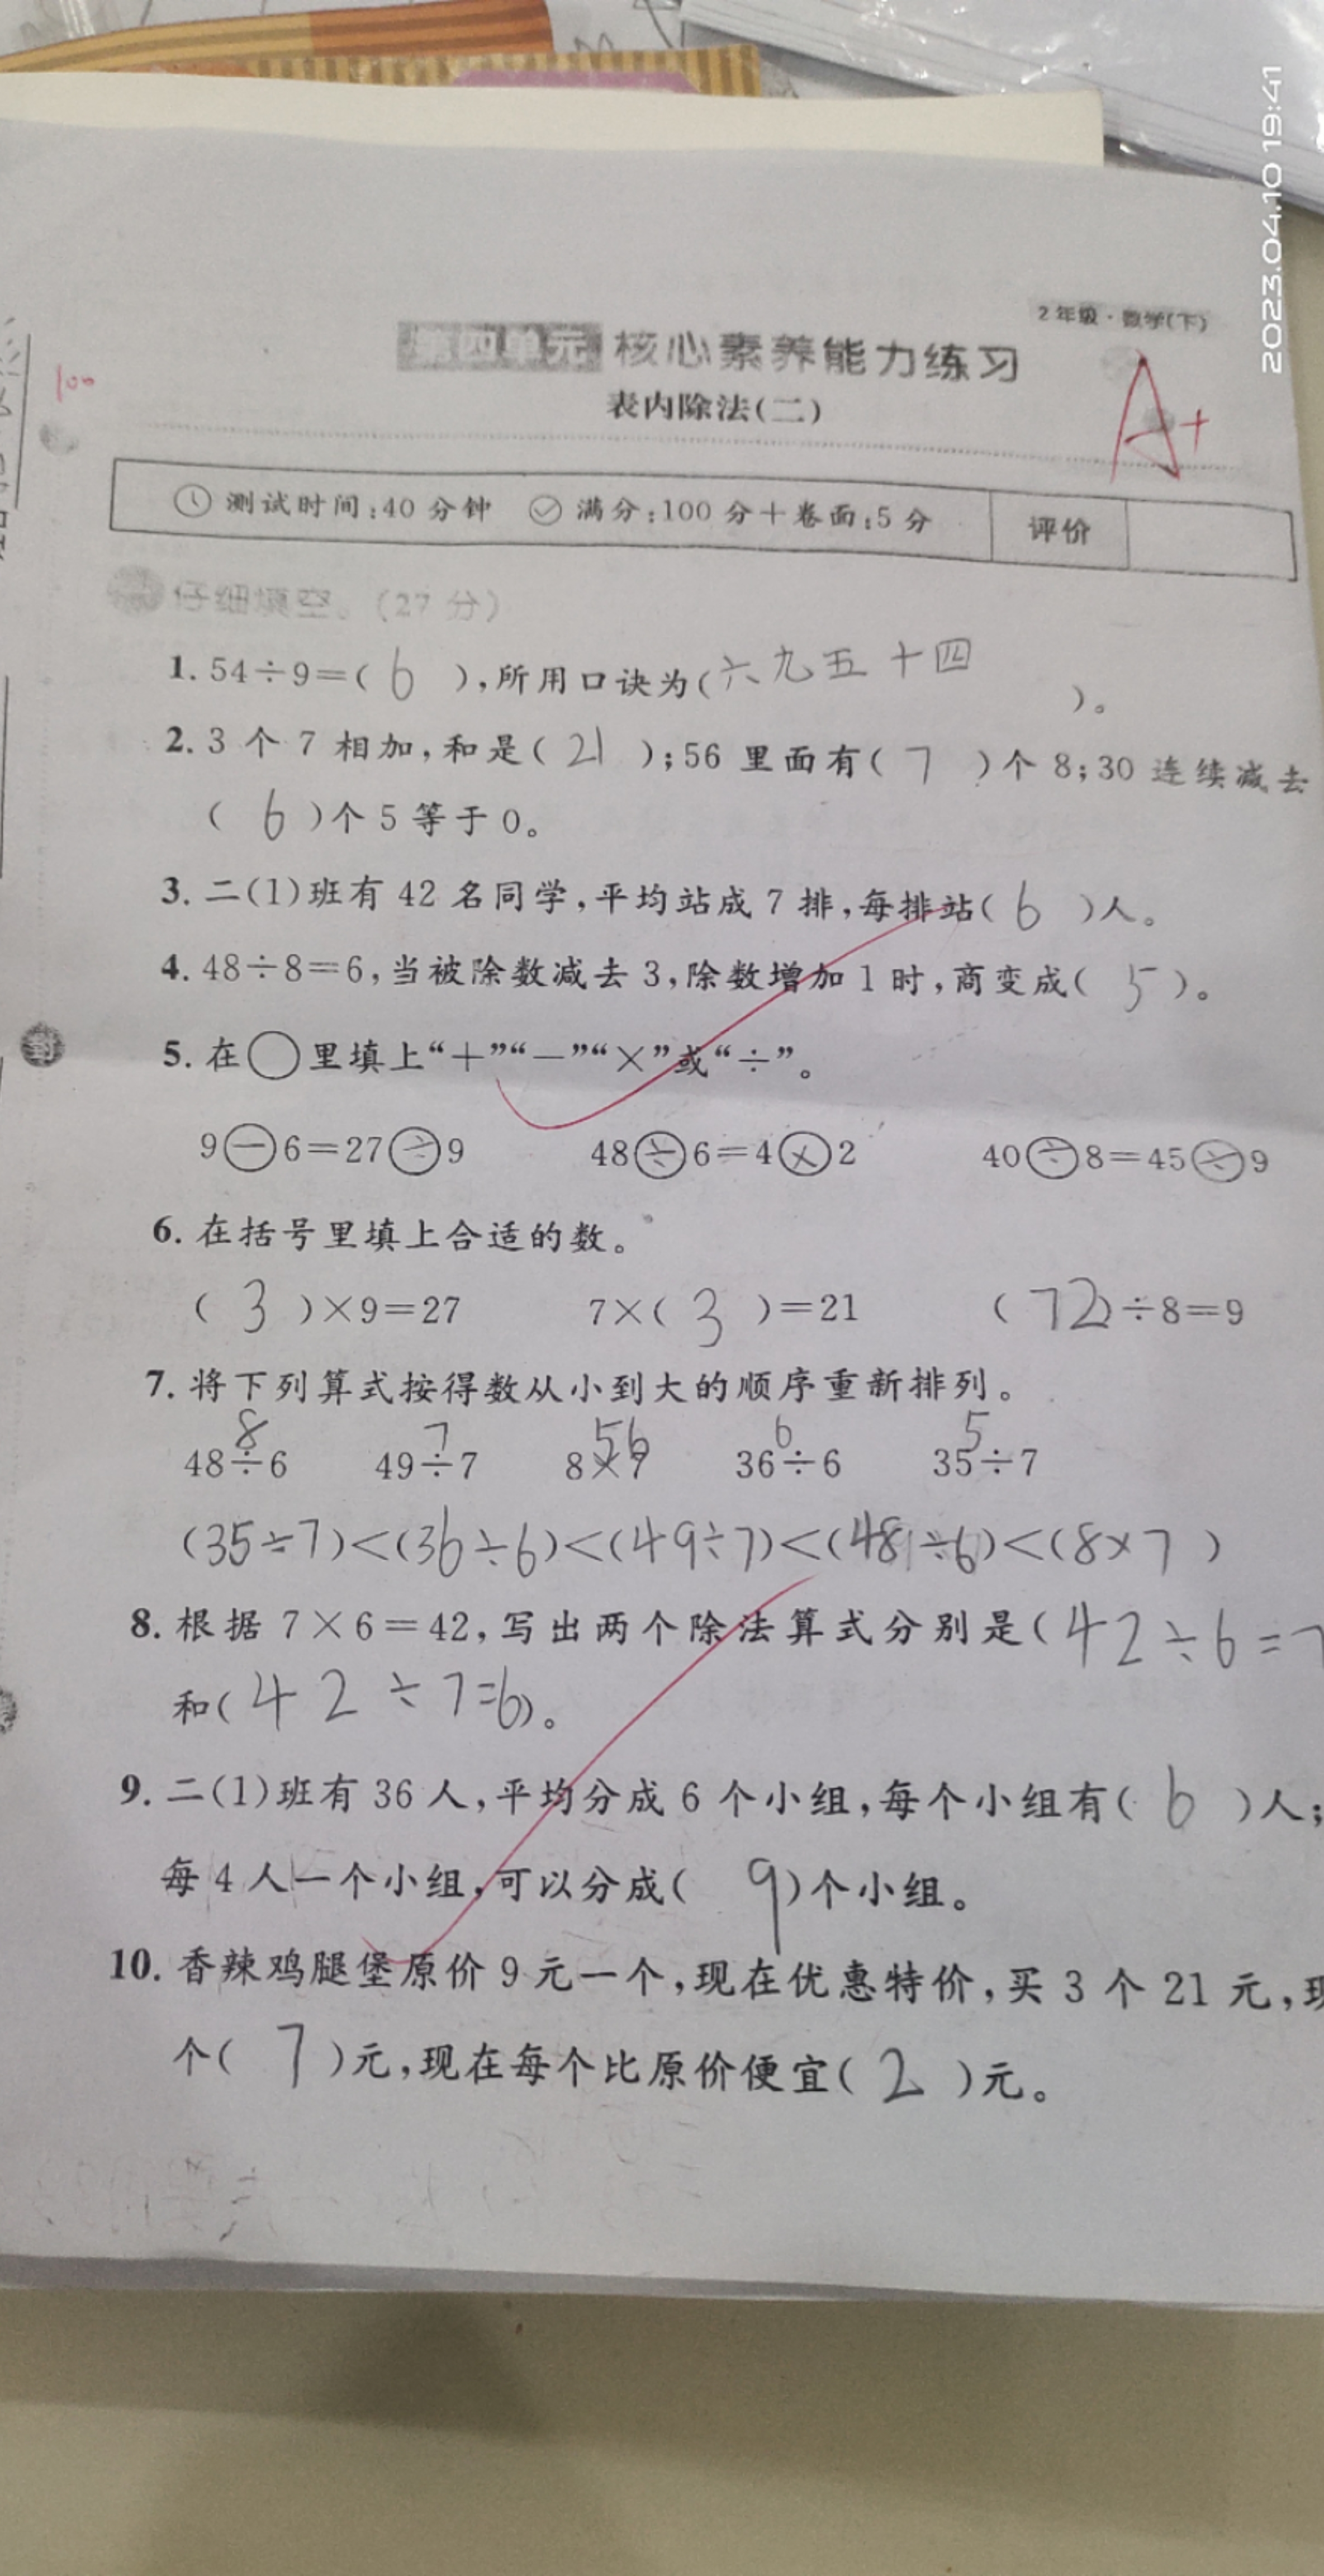 2023.04.10 19:41
2年级·数学(下)
第四单元 核心素养能力练习
100
表内除法(二)
A+
测试时间:40分钟 满分:100分+卷面:5分 评价
仔细填空。(27分)
1. 54÷9=( 6 ),所用口诀为(六九五十四)。
2. 3个7相加,和是( 21 );56里面有( 7 )个8;30连续减去
( 6 )个5等于0。
3. 二(1)班有42名同学,平均站成7排,每排站( 6 )人。
4. 48÷8=6,当被除数减去3,除数增加1时,商变成( 5 )。
5. 在○里填上“+”“-”“×”或“÷”。
9-6=27÷9 48÷6=4×2 40÷8=45÷9
6. 在括号里填上合适的数。
( 3 )×9=27 7×( 3 )=21 ( 72 )÷8=9
7. 将下列算式按得数从小到大的顺序重新排列。
8 7 56 6 5
48÷6 49÷7 8×7 36÷6 35÷7
(35÷7)<(36÷6)<(49÷7)<(48÷6)<(8×7)
8. 根据7×6=42,写出两个除法算式分别是(42÷6=7
和(42÷7=6)。
9. 二(1)班有36人,平均分成6个小组,每个小组有( 6 )人;
每4人一个小组,可以分成( 9 )个小组。
10. 香辣鸡腿堡原价9元一个,现在优惠特价,买3个21元,现
个( 7 )元,现在每个比原价便宜( 2 )元。